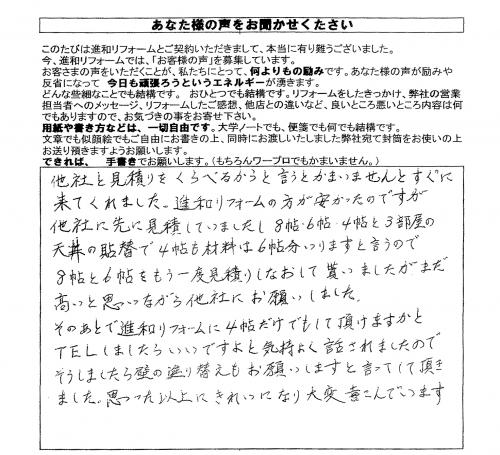 あなた様の声をお聞かせください
このたびは進和リフォームとご契約いただきまして、本当に有り難うございました。
今、進和リフォームでは、「お客様の声」を募集しています。
お客さまの声をいただくことが、私たちにとって、何よりもの励みです。あなた様の声が励みや
反省になって 今日も頑張ろうというエネルギーが湧きます。
どんな些細なことでも結構です。 おひとつでも結構です。リフォームをしたきっかけ、弊社の営業
担当者へのメッセージ、リフォームしたご感想、他店との違いなど、良いところ悪いところ内容は何
でもありますので、お気づきの事をお寄せ下さい。
用紙や書き方などは、一切自由です。大学ノートでも、便箋でも何でも結構です。
文章でも似顔絵でもご自由にお書きの上、同時にお渡しいたしました弊社宛て封筒をお使いの上
お送り頂きますようお願いします。
できれば、 手書きでお願いします。(もちろんワープロでもかまいません。)
他社と見積りをくらべるかうと言うとかまいませんとすぐに
来てくれました。進和リフォームの方が安かったのですが
他社に先に見積していましたし8帖・6帖・4帖と3部屋の
天井の貼替で4帖も材料は6帖分いりますと言うので
8帖と6帖をもう一度見積りしなおして貰いましたがまだ
高いと思いながら他社にお願いしました。
そのあとで進和リフォームに4帖だけでもして頂けますかと
TELしましたらいいですよと気持よく話されましたので
そうしましたら壁の塗り替えもお願いしますと言ってして頂き
ました。思った以上にきれいになり大変喜こんでいます